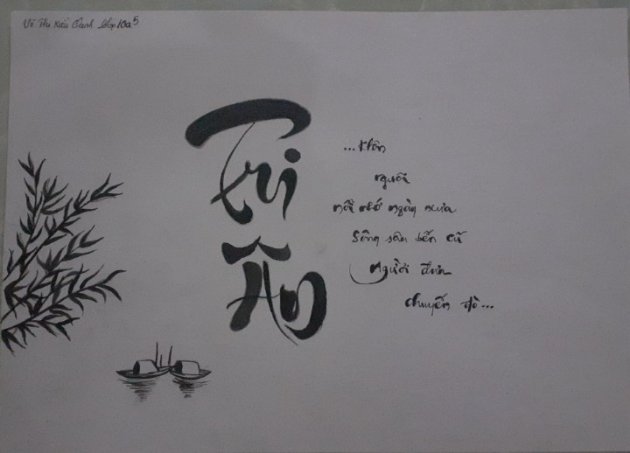 Võ Thị Kiều Oanh Lớp 10a5
Tri
Ân
...Khôn
nguôi
nỗi nhớ ngàn xưa
Sông sâu bến cũ
Người đưa
chuyến đò...